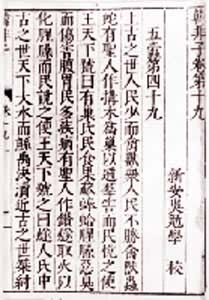 韓非子卷第十九
新安吳勉學 校
五蠹第四十九
上古之世人民少而禽獸衆人民不勝禽獸蟲
蛇有聖人作搆木爲巢以避羣害而民悅之使
王天下號曰有巢氏民食果蓏蜯蛤腥臊惡臭
而傷害腹胃民多疾病有聖人作鑽燧取火以
化腥臊而民說之使王天下號之曰燧人氏中
古之世天下大水而鯀禹決瀆近古之世桀紂